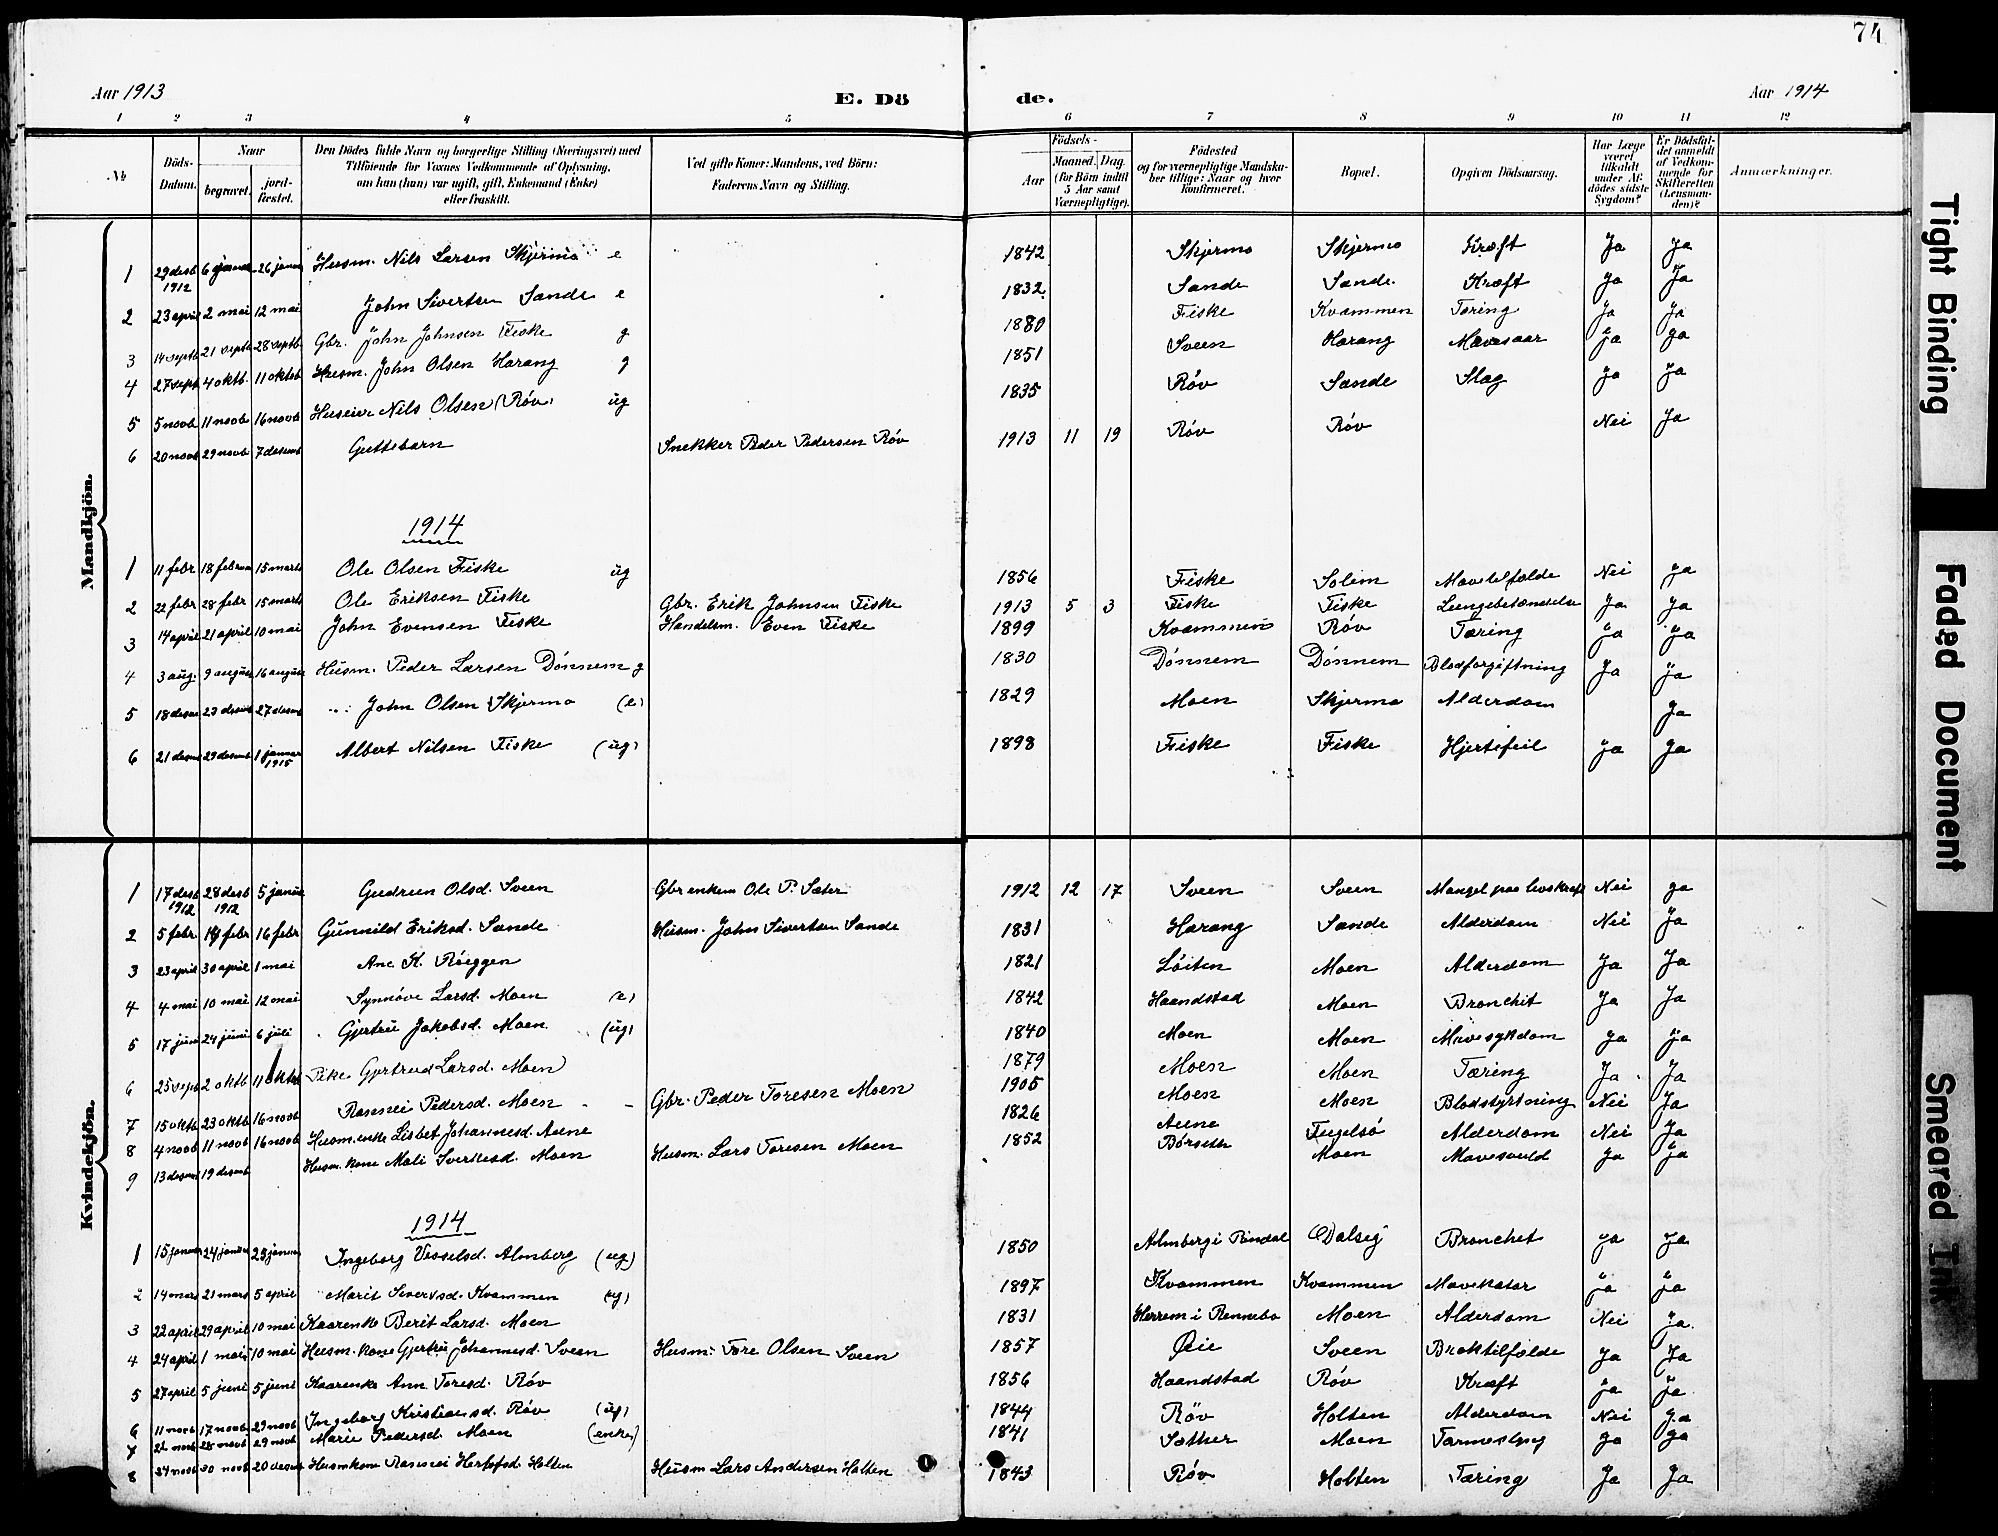 74
Aar 1913
E. Dö
de.
Aar 1914
1 2 3 4 5 6 7 8 9 10 11 12
No
Döds-Datum.
Naar
begravet.
jord-fæstet.
Den Dödes fulde Navn og borgerlige Stilling (Næringsvei) med
Tilföiende for Voxnes Vedkommende af Oplysning,
om han (hun) var ugift, gift, Enkemand (Enke)
eller fraskilt.
Ved gifte Koner: Mandens, ved Börn:
Faderens Navn og Stilling.
Födsels-
Aar
Maaned.
Dag.
(for Börn indtil
5 Aar samt
Værnepligtige).
Födested
og for værnepligtige Mandska-
ber tillige: Naar og hvor
Konfirmeret.
Bopæl.
Opgiven Dödsaarsag.
Har Læge
været
tilkaldt
under Af-
dödes sidste
Sygdom?
Er Dödsfal-
det anmeldt
af Vedkom-
mende for
Skifteretten
(Lensman-
den)?
Anmærkninger.
Mandkjön.
1 29 desb 1912 6 janua 26 janu Husm. Nils Larsen Skjermo e 1842 Skjermo Skjermo Kræft Ja Ja
2 23 april 2 mai 12 mai John Sivertsen Sande e 1832 Sande Sande Kræft Ja Ja
3 14 septb 21 septb 28 septb. Gbr. John Johnsen Fiske g 1880 Fiske Kvammen Tæring Ja Ja
4 27 sept 4 oktb. 11 oktob Husm. John Olsen Harang g 1851 Sveen Harang Mavesaar Ja Ja
5 5 novb 11 novb 16 novb Huseier Nils Olsen Røv ug 1835 Røv Sande Slag Ja Ja
6 20 novb 29 novb 7 desemb Guttebarn Snekker Peder Pedersen Røv 1913 11 19 Røv Røv Nei Ja
1914
1 11 febr 18 februa 15 marts Ole Olsen Fiske ug 1856 Fiske Solem Mavetilfælde Nei Ja
2 22 febr 28 febr 15 marts Ole Eriksen Fiske Gbr. Erik Johnsen Fiske 1913 5 3 Fiske Fiske Lungebetændelse Ja Ja
3 14 april 21 april 10 mai John Evensen Fiske Handelsm. Even Fiske 1899 Kvammen Røv Tæring Ja Ja
4 3 aug. 9 august 16 august Husm. Peder Larsen Dønnem g 1830 Dønnem Dønnem Blodforgiftning Ja Ja
5 18 desem 23 desemb 27 desemb " John Olsen Skjermo (e) 1829 Moen Skjermo Alderdom Ja
6 21 desem 29 desemb 1 januar 1915 Albert Nilsen Fiske (ug) 1898 Fiske Fiske Hjertefeil Ja Ja
Kvindekjön.
1 17 desb 1912 28 desb 1912 5 janua Gudrun Olsd. Sveen Gbr enkem Ole P. Sæter 1912 12 17 Sveen Sveen Mangel paa livskraft Nei Ja
2 5 febr 14 febr 16 febr Gunnild Eriksd. Sande Husm. John Sivertsen Sande 1831 Harang Sande Alderdom Nei Ja
3 23 april 30 april 1 mai Ane K. Røiggen 1821 Løiten Moen Alderdom Ja Ja
4 4 mai 10 mai 12 mai Synnøve Larsd. Moen (e) 1842 Haandstad Moen Bronchit Ja Ja
5 17 juni 24 juni 6 juli Gjertru Jakobsd. Moen (ug) 1840 Moen Moen Mavesykdom Ja Ja
6 25 sept 2 oktb 11 oktob Pike Gjertrud Larsd. Moen 1879 Moen Moen Tæring Ja Ja
7 15 oktb 23 oktb 16 novb Rannei Pedersd. Moen Gbr. Peder Toresen Moen 1905 Moen Moen Blodstyrtning Nei Ja
8 4 novb 11 novb 16 novb Husm. enke Lisbet Johannesd. Aune 1826 Aune Fugelsø Alderdom Nei Ja
9 13 desem 19 desemb Husm. kone Mali Sivertsd. Moen Husm. Lars Toresen Moen 1852 Børseth Moen Mavesvuld Ja Ja
1914
1 15 januar 24 januar 25 januar Ingeborg Vesselsd. Almberg (ug) 1850 Almberg i Rindal Dalseg Bronchet Ja Ja
2 14 mars 21 mars 5 april Marit Sivertsd. Kvammen (ug) 1897 Kvammen Kvammen Mavekatar Ja Ja
3 22 april 29 april 10 mai Kaarenke Berit Larsd. Moen 1831 Herrem i Rennebo Moen Alderdom Nei Ja
4 24 april 1 mai 10 mai Husm. kone Gjertru Johannesd. Sveen Husm: Tore Olsen Sveen 1857 Øie Sveen Broktilfælde Ja Ja
5 27 april 5 juni 5 juni Kaarenke Ann Toresd. Røv 1856 Haandstad Røv Kræft Ja Ja
6 11 novb 17 novb 29 novb Ingeborg Kristiansd. Røv (ug) 1844 Røv Holten Alderdom Nei Ja
7 22 novb 28 novb 29 novb Marie Pedersd. Moen (enke) 1841 Sæther Moen Tarmeslyng Ja Ja
8 24 novb 30 novb 20 desem Husmkone Rannei Herlofsd. Holten Husm Lars Andersen Holten 1843 Røv Holten Tæring Ja Ja
Tight Binding
Faded Document
Smeared Ink